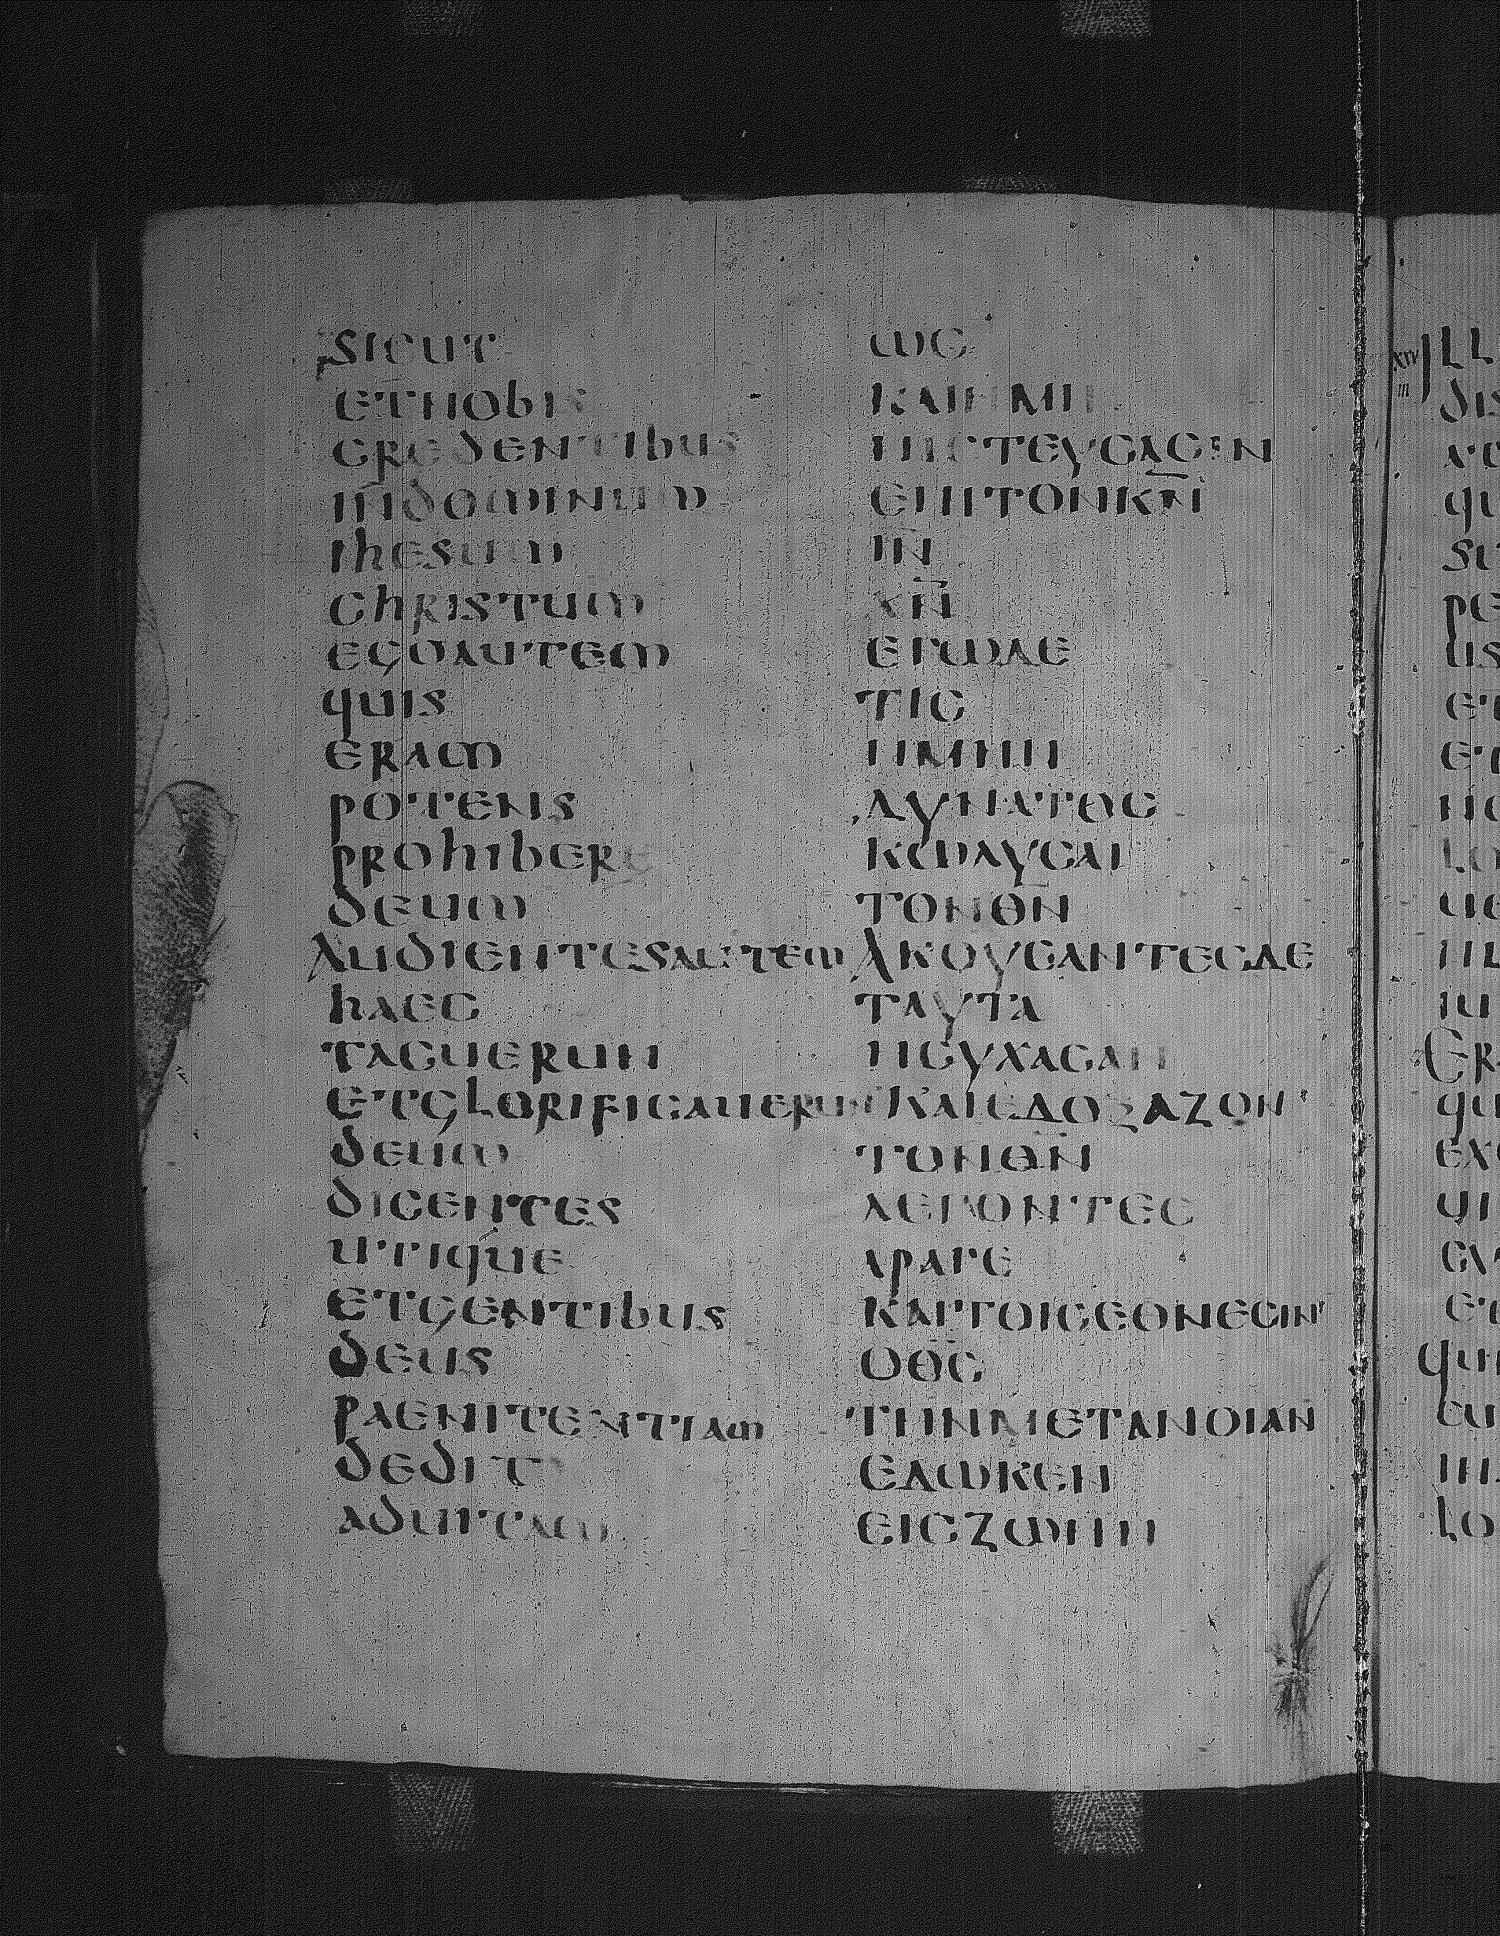 sicut
etnobis
credentibus
indominum
ihesum
christum
egoautem
quis
eram
potens
prohibere
deum
Audientesautem
haec
tacuerun
etglorificauerun
deum
dicentes
utique
etgentibus
deus
paenitentiam
dedit
aduitam
ωϲ
καιημιν
πιϲτευϲαϲιν
επιτονκ̅ν̅
ι̅ν̅
χ̅ν̅
εγωδε
τιϲ
ημην
δυνατοϲ
κωλυϲαι
τονθ̅ν̅
Ακουϲαντεϲδε
ταυτα
ηϲυχαϲαν
καιεδοξαζον
τονθ̅ν̅
λεγοντεϲ
αραγε
καιτοιϲεθνεϲιν
οθ̅ϲ̅
τηνμετανοιαν
εδωκεν
ειϲζωην
xiv
iii